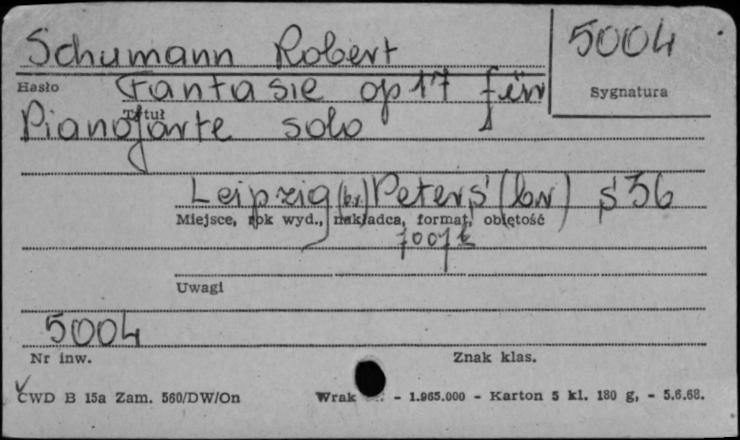 Schumann Robert
5004
Hasło Fantasie op 17 für
Sygnatura
Tytuł
Pianoforte solo
Leipzig (b.r.) Peters (br) s 36
Miejsce, rok wyd., nakładca, format, objętość
Uwagi
5004
Nr inw.
Znak klas.
CWD B 15a Zam. 560/DW/On Wrak - 1.965.000 - Karton 5 kl. 180 g, - 5.6.68.